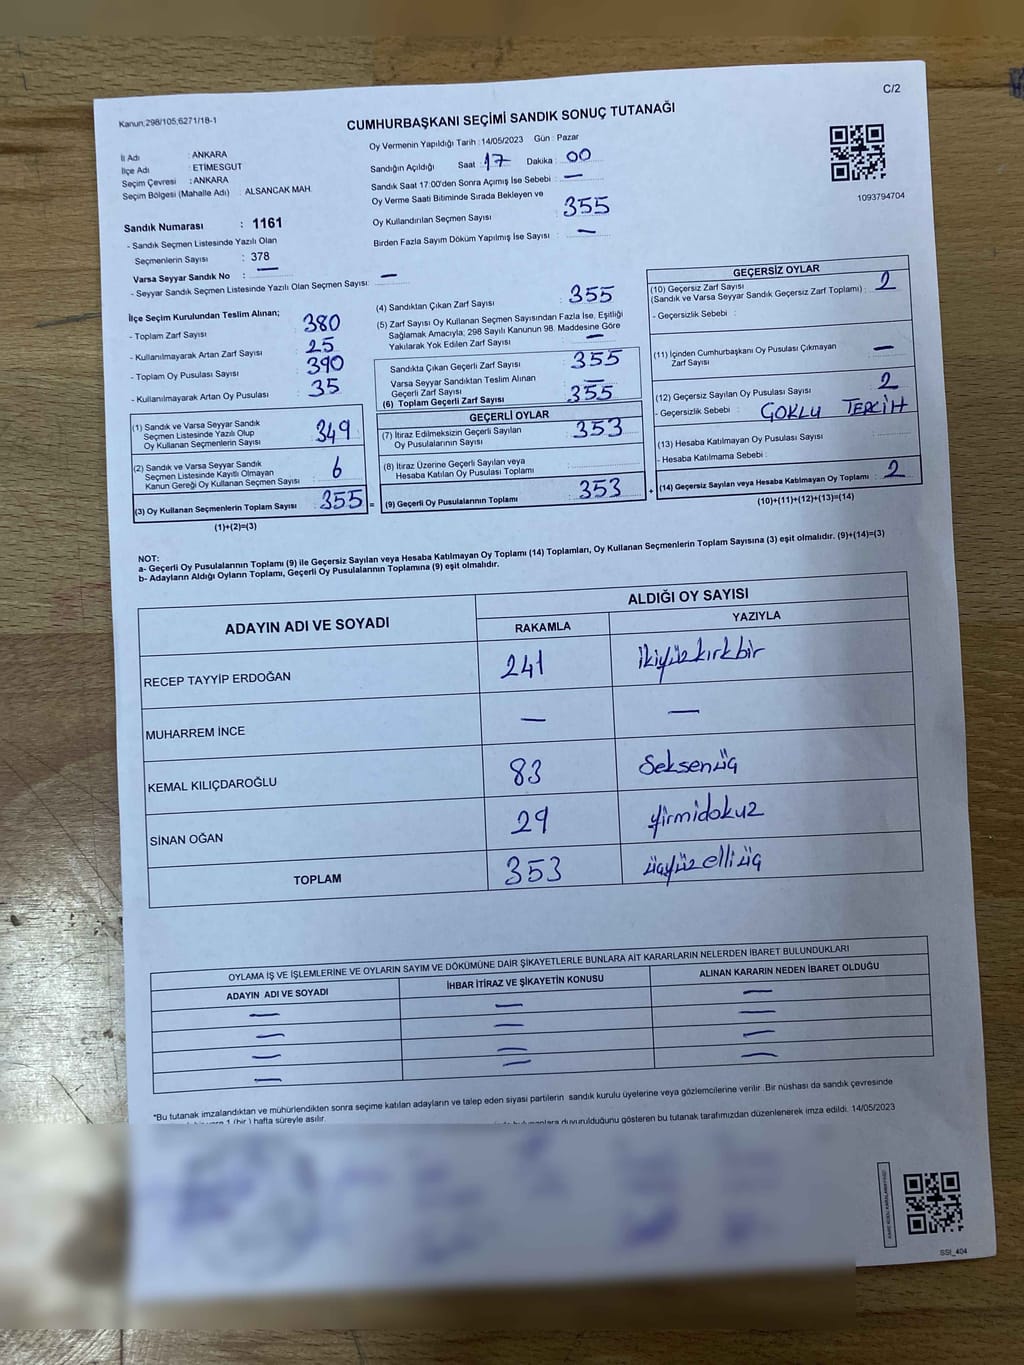 C/2
Kanun:298/105;6271/18-1
CUMHURBAŞKANI SEÇİMİ SANDIK SONUÇ TUTANAĞI
İl Adı : ANKARA
İlçe Adı : ETİMESGUT
Seçim Çevresi : ANKARA
Seçim Bölgesi (Mahalle Adı) : ALSANCAK MAH.
Sandık Numarası : 1161
- Sandık Seçmen Listesinde Yazılı Olan
Seçmenlerin Sayısı : 378
Varsa Seyyar Sandık No : —
- Seyyar Sandık Seçmen Listesinde Yazılı Olan Seçmen Sayısı: —
Oy Vermenin Yapıldığı Tarih : 14/05/2023 Gün : Pazar
Sandığın Açıldığı Saat : 17 Dakika : 00
Sandık Saat 17:00'den Sonra Açımış İse Sebebi : —
Oy Verme Saati Bitiminde Sırada Bekleyen ve
Oy Kullandırılan Seçmen Sayısı : 355
Birden Fazla Sayım Döküm Yapılmış İse Sayısı : —
1093794704
İlçe Seçim Kurulundan Teslim Alınan;
- Toplam Zarf Sayısı : 380
- Kullanılmayarak Artan Zarf Sayısı : 25
- Toplam Oy Pusulası Sayısı : 390
- Kullanılmayarak Artan Oy Pusulası : 35
(1) Sandık ve Varsa Seyyar Sandık
Seçmen Listesinde Yazılı Olup
Oy Kullanan Seçmenlerin Sayısı : 349
(2) Sandık ve Varsa Seyyar Sandık
Seçmen Listesinde Kayıtlı Olmayan
Kanun Gereği Oy Kullanan Seçmen Sayısı : 6
(3) Oy Kullanan Seçmenlerin Toplam Sayısı : 355 =
(1)+(2)=(3)
(4) Sandıktan Çıkan Zarf Sayısı : 355
(5) Zarf Sayısı Oy Kullanan Seçmen Sayısından Fazla İse, Eşitliği
Sağlamak Amacıyla; 298 Sayılı Kanunun 98. Maddesine Göre
Yakılarak Yok Edilen Zarf Sayısı : —
Sandıkta Çıkan Geçerli Zarf Sayısı : 355
Varsa Seyyar Sandıktan Teslim Alınan
Geçerli Zarf Sayısı : —
(6) Toplam Geçerli Zarf Sayısı : 355
GEÇERLİ OYLAR
(7) İtiraz Edilmeksizin Geçerli Sayılan
Oy Pusulalarının Sayısı : 353
(8) İtiraz Üzerine Geçerli Sayılan veya
Hesaba Katılan Oy Pusulası Toplamı :
(9) Geçerli Oy Pusulalarının Toplamı : 353 +
GEÇERSİZ OYLAR
(10) Geçersiz Zarf Sayısı
(Sandık ve Varsa Seyyar Sandık Geçersiz Zarf Toplamı) : 2
- Geçersizlik Sebebi :
(11) İçinden Cumhurbaşkanı Oy Pusulası Çıkmayan
Zarf Sayısı : —
(12) Geçersiz Sayılan Oy Pusulası Sayısı : 2
- Geçersizlik Sebebi : ÇOKLU TERCİH
(13) Hesaba Katılmayan Oy Pusulası Sayısı :
- Hesaba Katılmama Sebebi :
(14) Geçersiz Sayılan veya Hesaba Katılmayan Oy Toplamı : 2
(10)+(11)+(12)+(13)=(14)
NOT:
a- Geçerli Oy Pusulalarının Toplamı (9) ile Geçersiz Sayılan veya Hesaba Katılmayan Oy Toplamı (14) Toplamları, Oy Kullanan Seçmenlerin Toplam Sayısına (3) eşit olmalıdır. (9)+(14)=(3)
b- Adayların Aldığı Oyların Toplamı, Geçerli Oy Pusulalarının Toplamına (9) eşit olmalıdır.
ADAYIN ADI VE SOYADI
ALDIĞI OY SAYISI
RAKAMLA YAZIYLA
RECEP TAYYİP ERDOĞAN 241 ikiyüzkırkbir
MUHARREM İNCE — —
KEMAL KILIÇDAROĞLU 83 Seksenüç
SİNAN OĞAN 29 yirmidokuz
TOPLAM 353 üçyüzelliüç
OYLAMA İŞ VE İŞLEMLERİNE VE OYLARIN SAYIM VE DÖKÜMÜNE DAİR ŞİKAYETLERLE BUNLARA AİT KARARLARIN NELERDEN İBARET BULUNDUKLARI
ADAYIN ADI VE SOYADI İHBAR İTİRAZ VE ŞİKAYETİN KONUSU ALINAN KARARIN NEDEN İBARET OLDUĞU
— — —
— — —
— — —
— — —
"Bu tutanak imzalandıktan ve mühürlendikten sonra seçime katılan adayların ve talep eden siyasi partilerin sandık kurulu üyelerine veya gözlemcilerine verilir .Bir nüshası da sandık çevresinde
1 (bir ) hafta süreyle asılır.
duyurulduğunu gösteren bu tutanak tarafımızdan düzenlenerek imza edildi. 14/05/2023
SSI_404